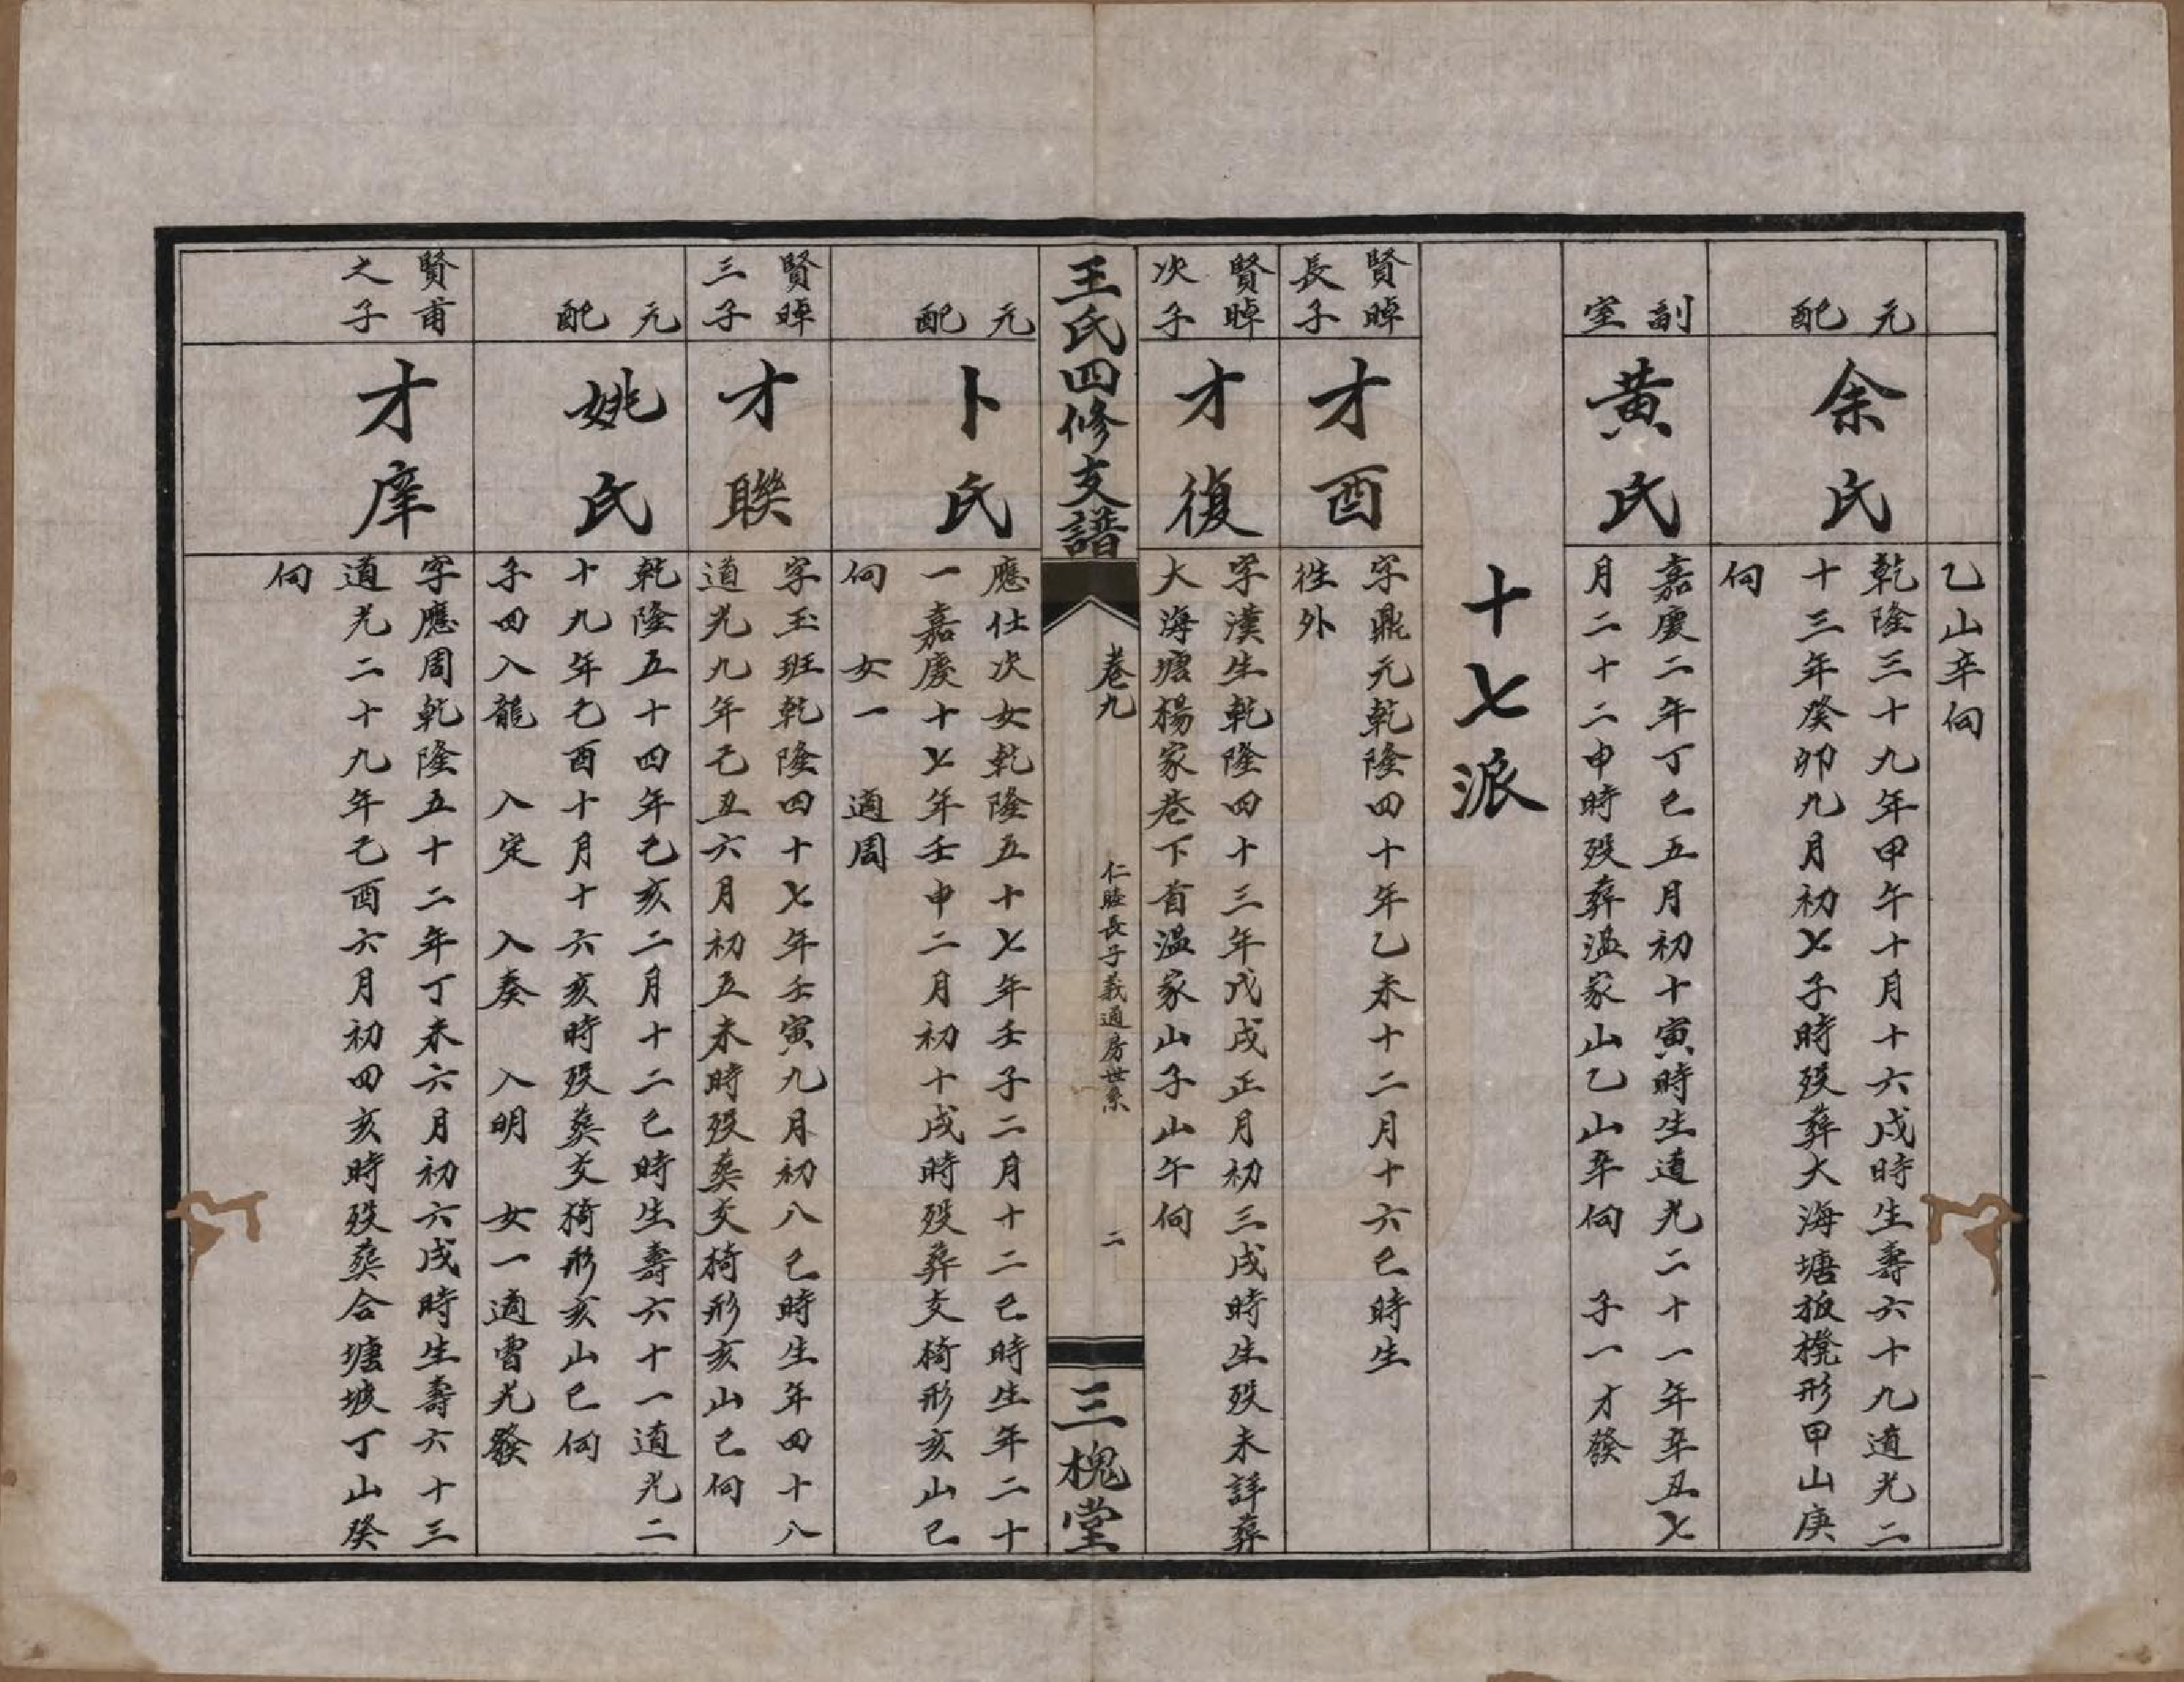 乙山辛向
元配
余氏
乾隆三十九年甲午十月十六戌時生壽六十九道光二
十三年癸卯九月初七子時歿葬大海塘板櫈形甲山庚
向
副室
黄氏
嘉慶二年丁巳五月初十寅時生道光二十一年辛丑七
月二十二申時歿葬溫家山乙山辛向 子一才發
十七派
賢晫
長子
才酉
字鼎元乾隆四十年乙未十二月十六巳時生
徃外
賢晫
次子
才復
字漢生乾隆四十三年戊戌正月初三戌時生歿未詳葬
大海塘楊家巷下首溫家山子山午向
王氏四修支譜
卷九
仁睦長子義適房世系
二
三槐堂
元配
卜氏
應仕次女乾隆五十七年壬子二月十二巳時生年二十
一嘉慶十七年壬申二月初十戌時歿葬交椅形亥山巳
向 女一 適周
賢晫
三子
才聯
字玉班乾隆四十七年壬寅九月初八巳時生年四十八
道光九年己丑六月初五未時歿葬交椅形亥山巳向
元配
姚氏
乾隆五十四年己亥二月十二巳時生壽六十一道光二
十九年己酉十月十六亥時歿葬交椅形亥山巳向
子四入龍 入定 入奏 入明 女一適曹光發
賢甫
之子
才庠
字應周乾隆五十二年丁未六月初六戌時生壽六十三
道光二十九年己酉六月初四亥時歿葬合塘坡丁山癸
向